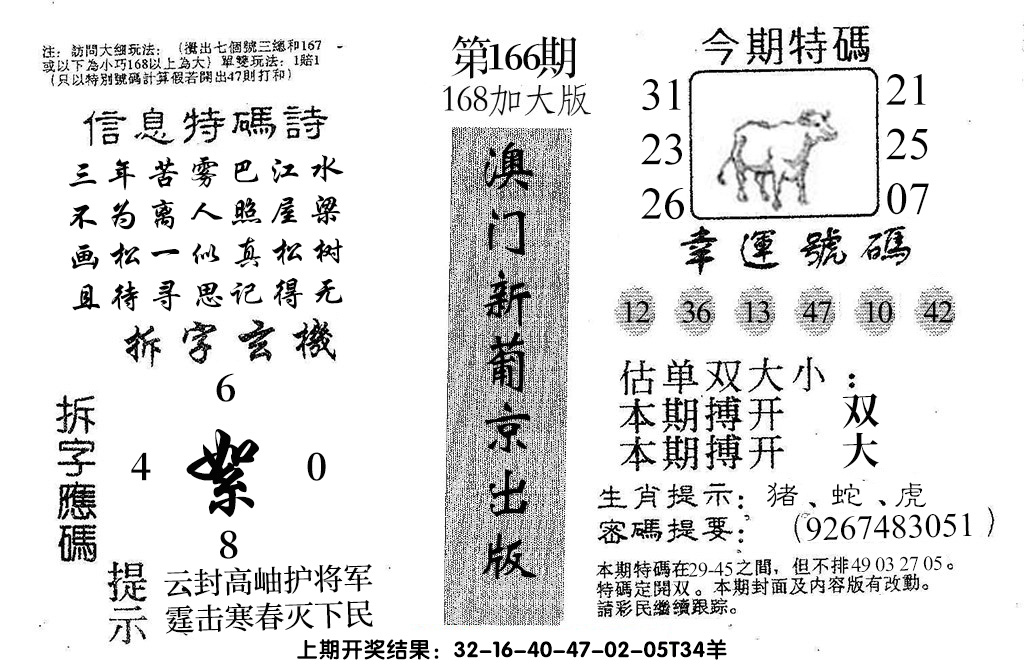 注：訪問大细玩法：（攪出七個號三總和167
或以下為小巧168以上為大）單雙玩法：1賠1
（只以特別號碼計算假若開出47則打和）
信息特碼詩
三年苦雾巴江水
不为离人照屋梁
画松一似真松树
且待寻思记得无
拆字玄機
拆字應碼
6
4 絮 0
8
提示
云封高岫护将军
霆击寒春灭下民
第166期
168加大版
澳门新葡京出版
今期特碼
31 21
23 25
26 07
幸運號碼
12 36 13 47 10 42
估单双大小：
本期搏开 双
本期搏开 大
生肖提示：猪、蛇、虎
密碼提要：（9267483051）
本期特碼在29-45之間，但不排49 03 27 05。
特碼定開双。本期封面及内容版有改動。
請彩民繼續跟踪。
上期开奖结果：32-16-40-47-02-05T34羊